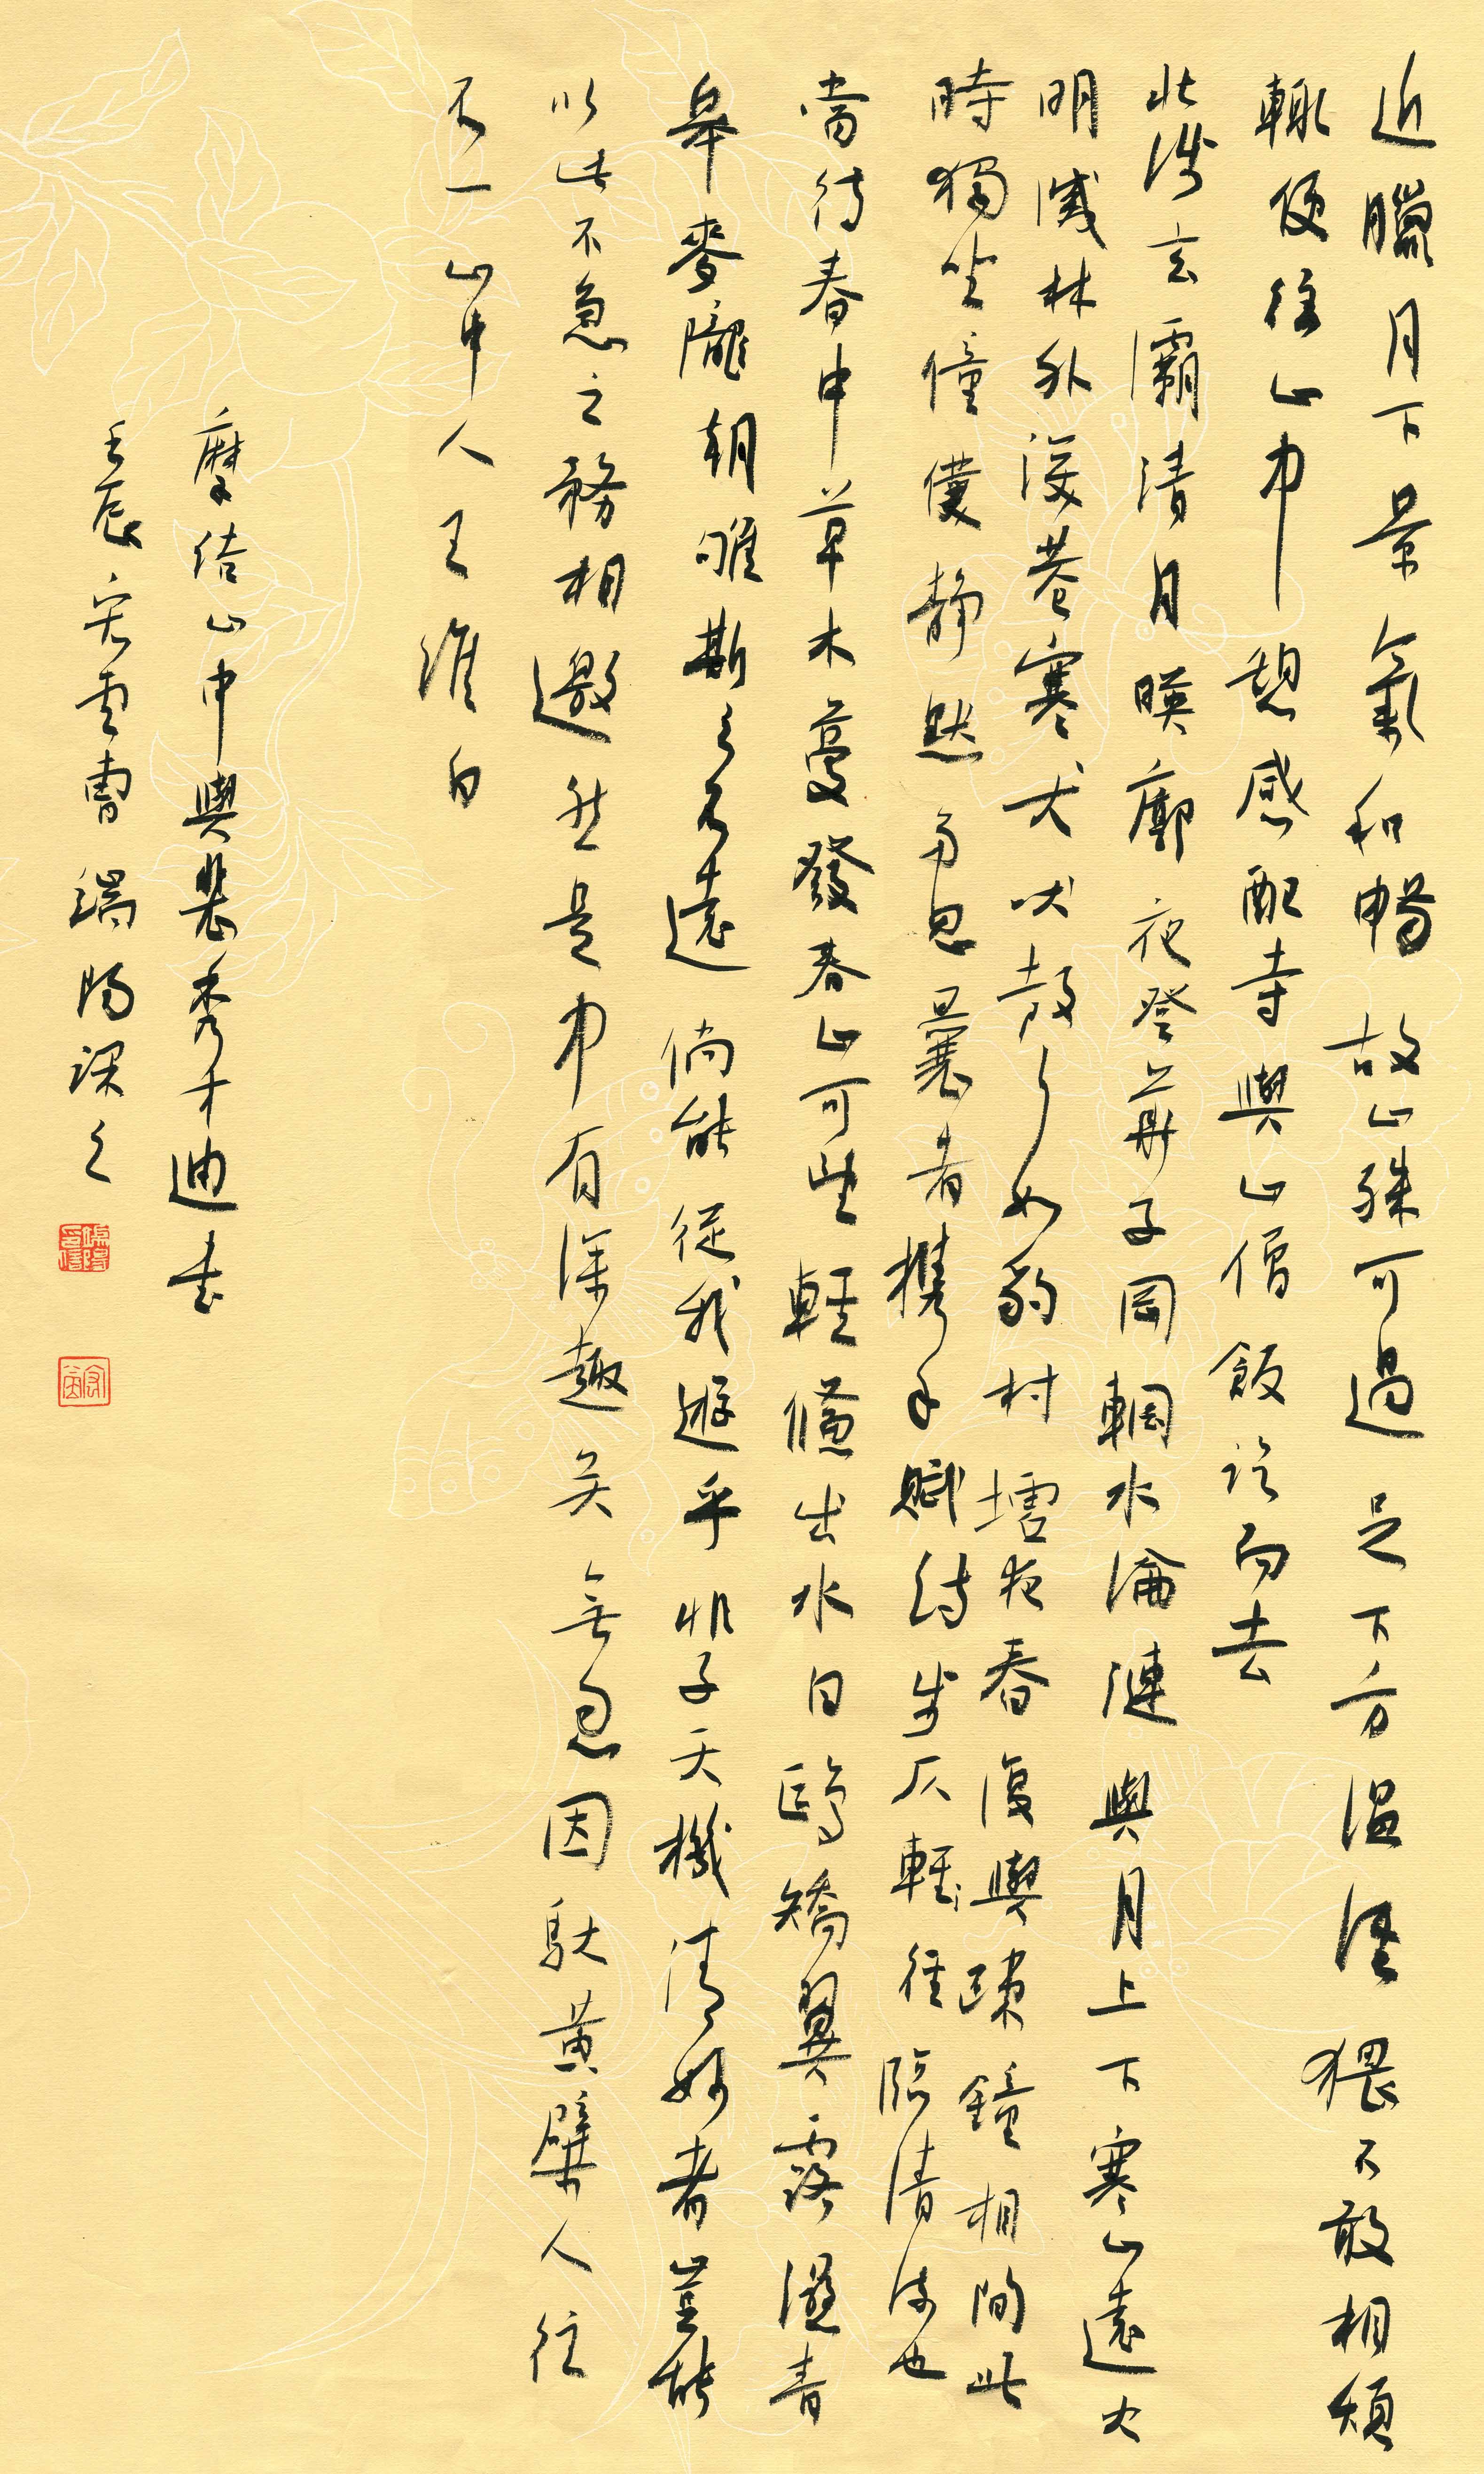 近臘月下景氣和暢故山殊可過足下方溫經猥不敢相煩
輒便往山中憩感配寺與山僧飯訖而去
北涉玄灞清月暎廓夜登華子岡輞水淪漣與月上下寒山遠火
明滅林外深巷寒犬吠聲如豹村墟夜舂復與疎鐘相間此
時獨坐僮僕静默多思曩者携手賦詩步仄輕徑臨清流也
當待春中草木蔓發春山可望輕儵出水白鷗矯翼露濕青
皋麥隴朝雊斯之不遠倘能從我遊乎非子天機清妙者豈能
以此不急之務相邀然是中有深趣矣無忽因馱黃檗人往
不一山中人王維白
摩詰山中與裴秀才迪書
壬辰 雲 端陽課之